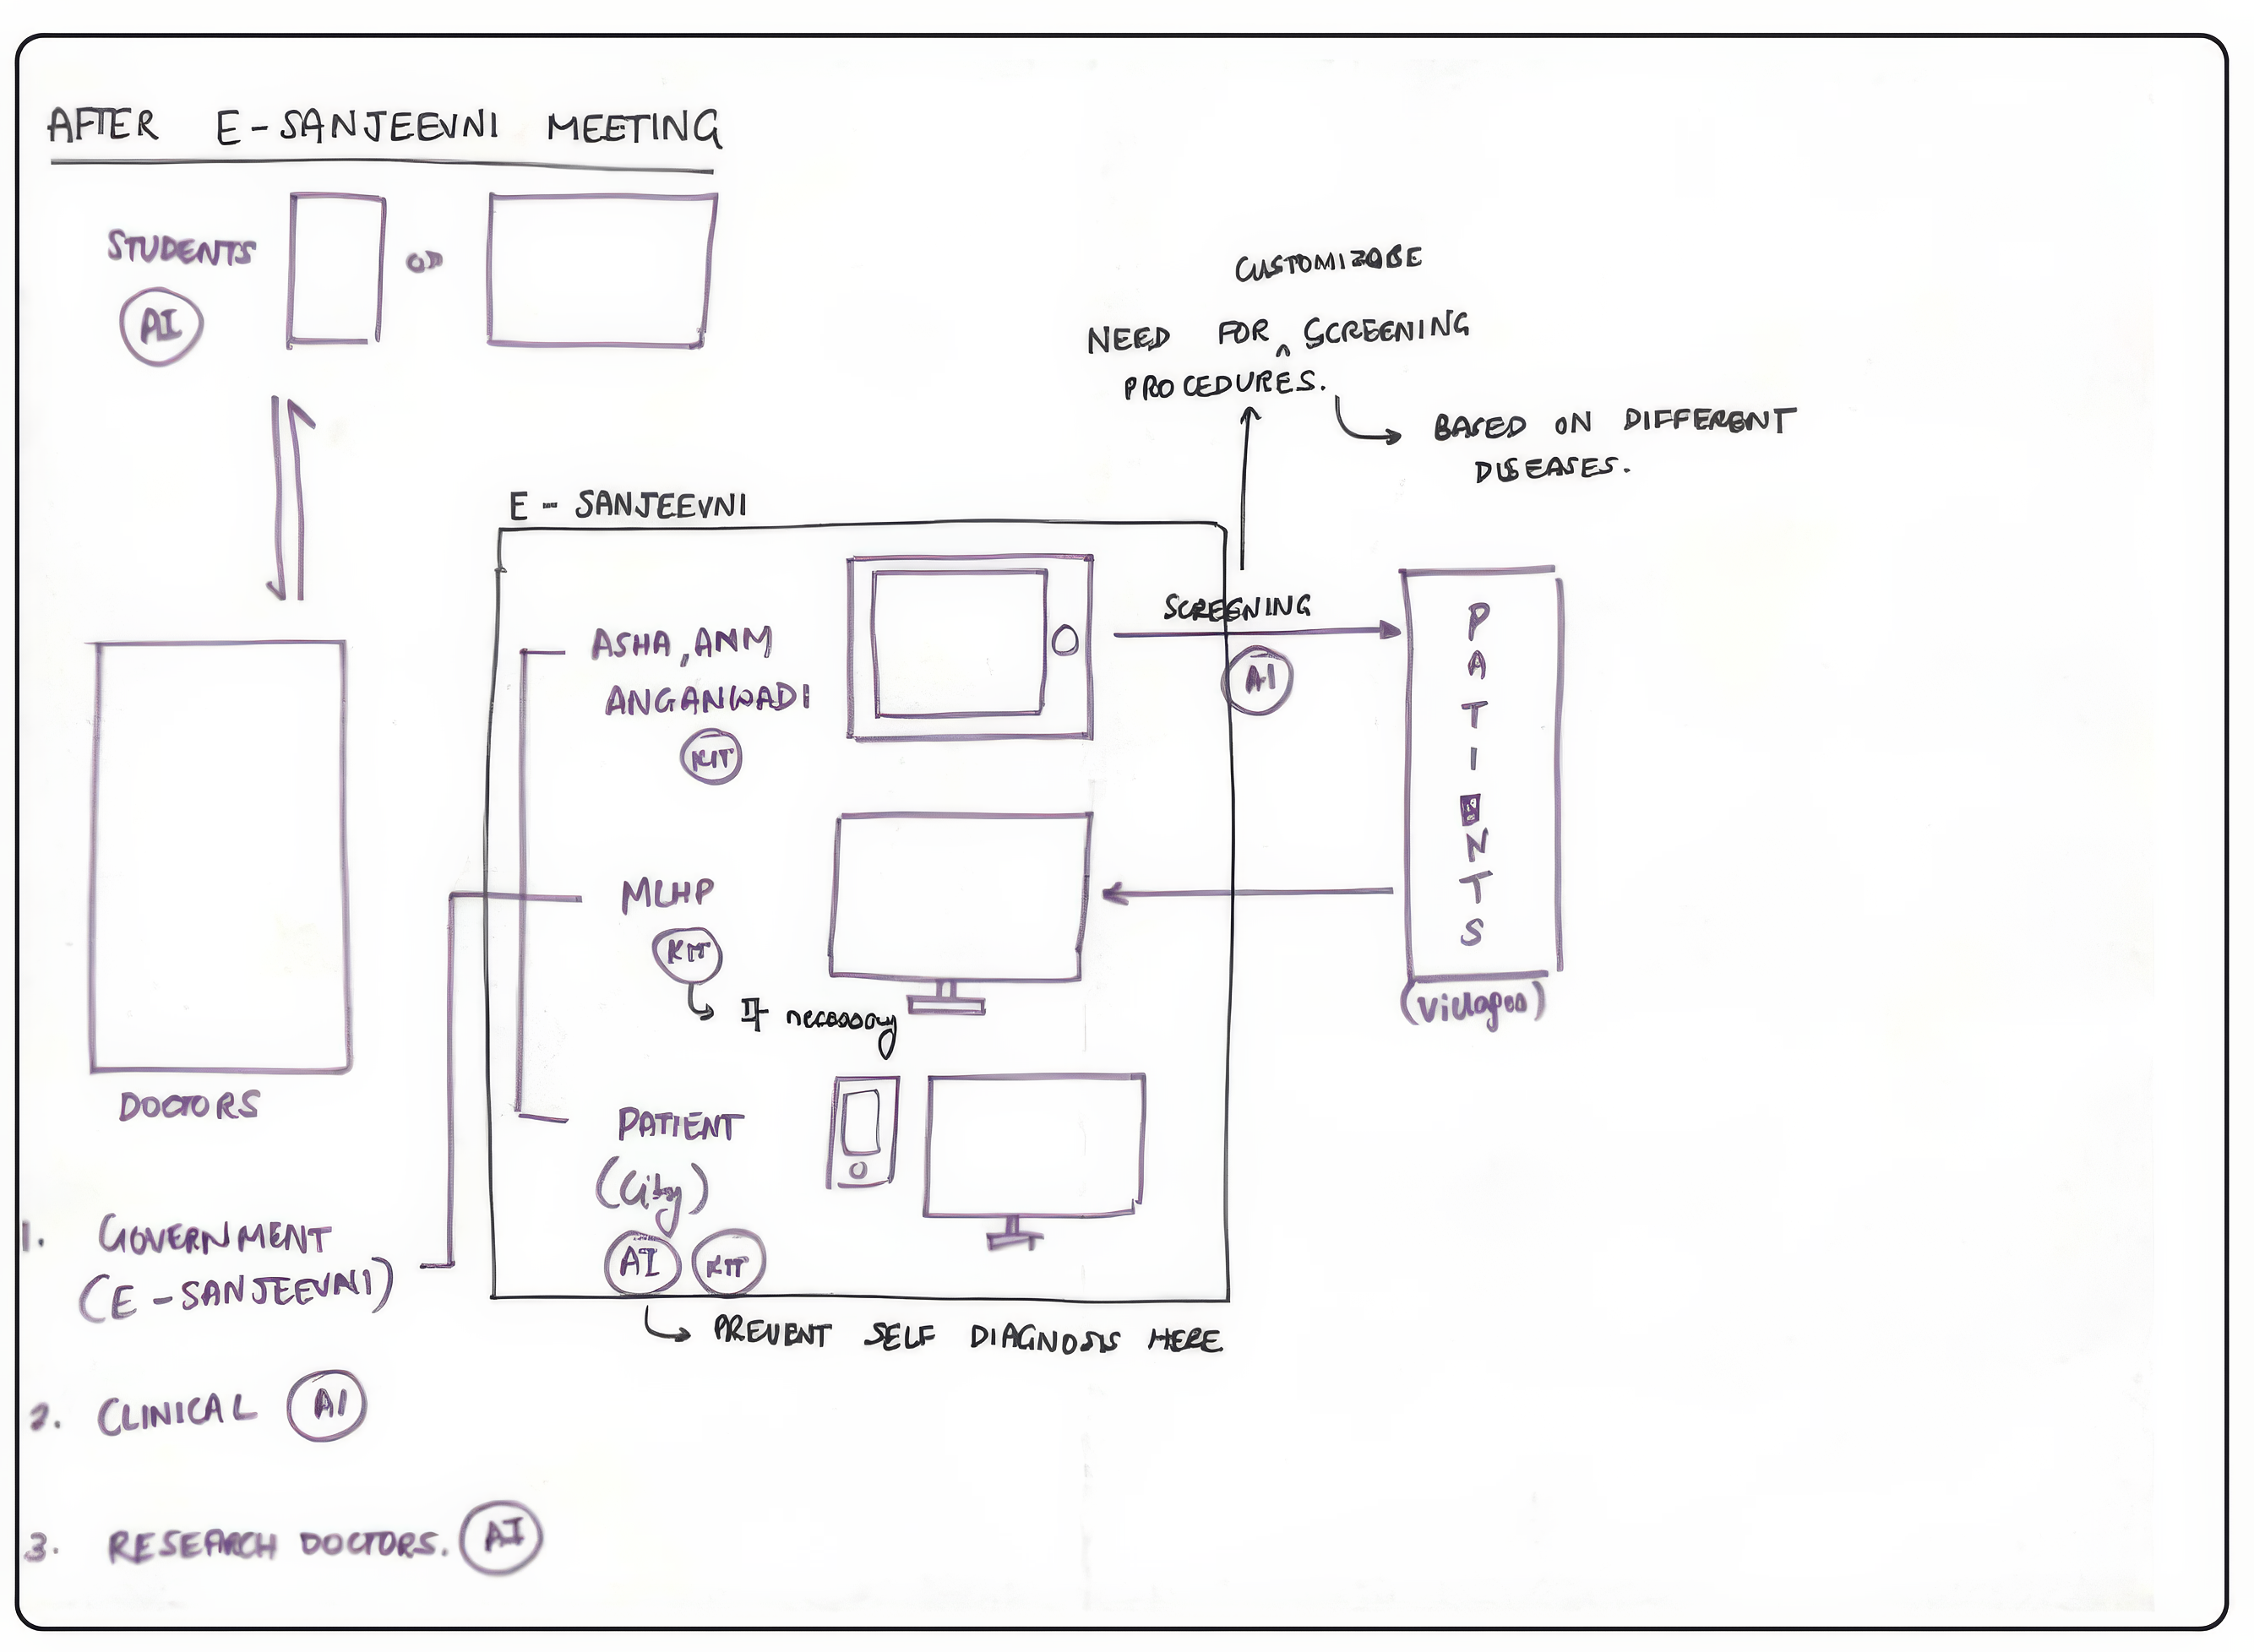 AFTER E-SANJEEVNI MEETING
STUDENTS
OR
AI
CUSTOMIZABE
NEED FOR ^ SCREENING
PROCEDURES.
BASED ON DIFFERENT
DISEASES.
E - SANJEEVNI
SCREENING
AI
ASHA, ANM
ANGANWADI
KIT
PATIENTS
(Villages)
MLHP
KIT
If necessary
DOCTORS
PATIENT
(City)
AI
KIT
PREVENT SELF DIAGNOSIS HERE
1. GOVERNMENT
(E - SANJEEVNI)
2. CLINICAL AI
3. RESEARCH DOCTORS. AI